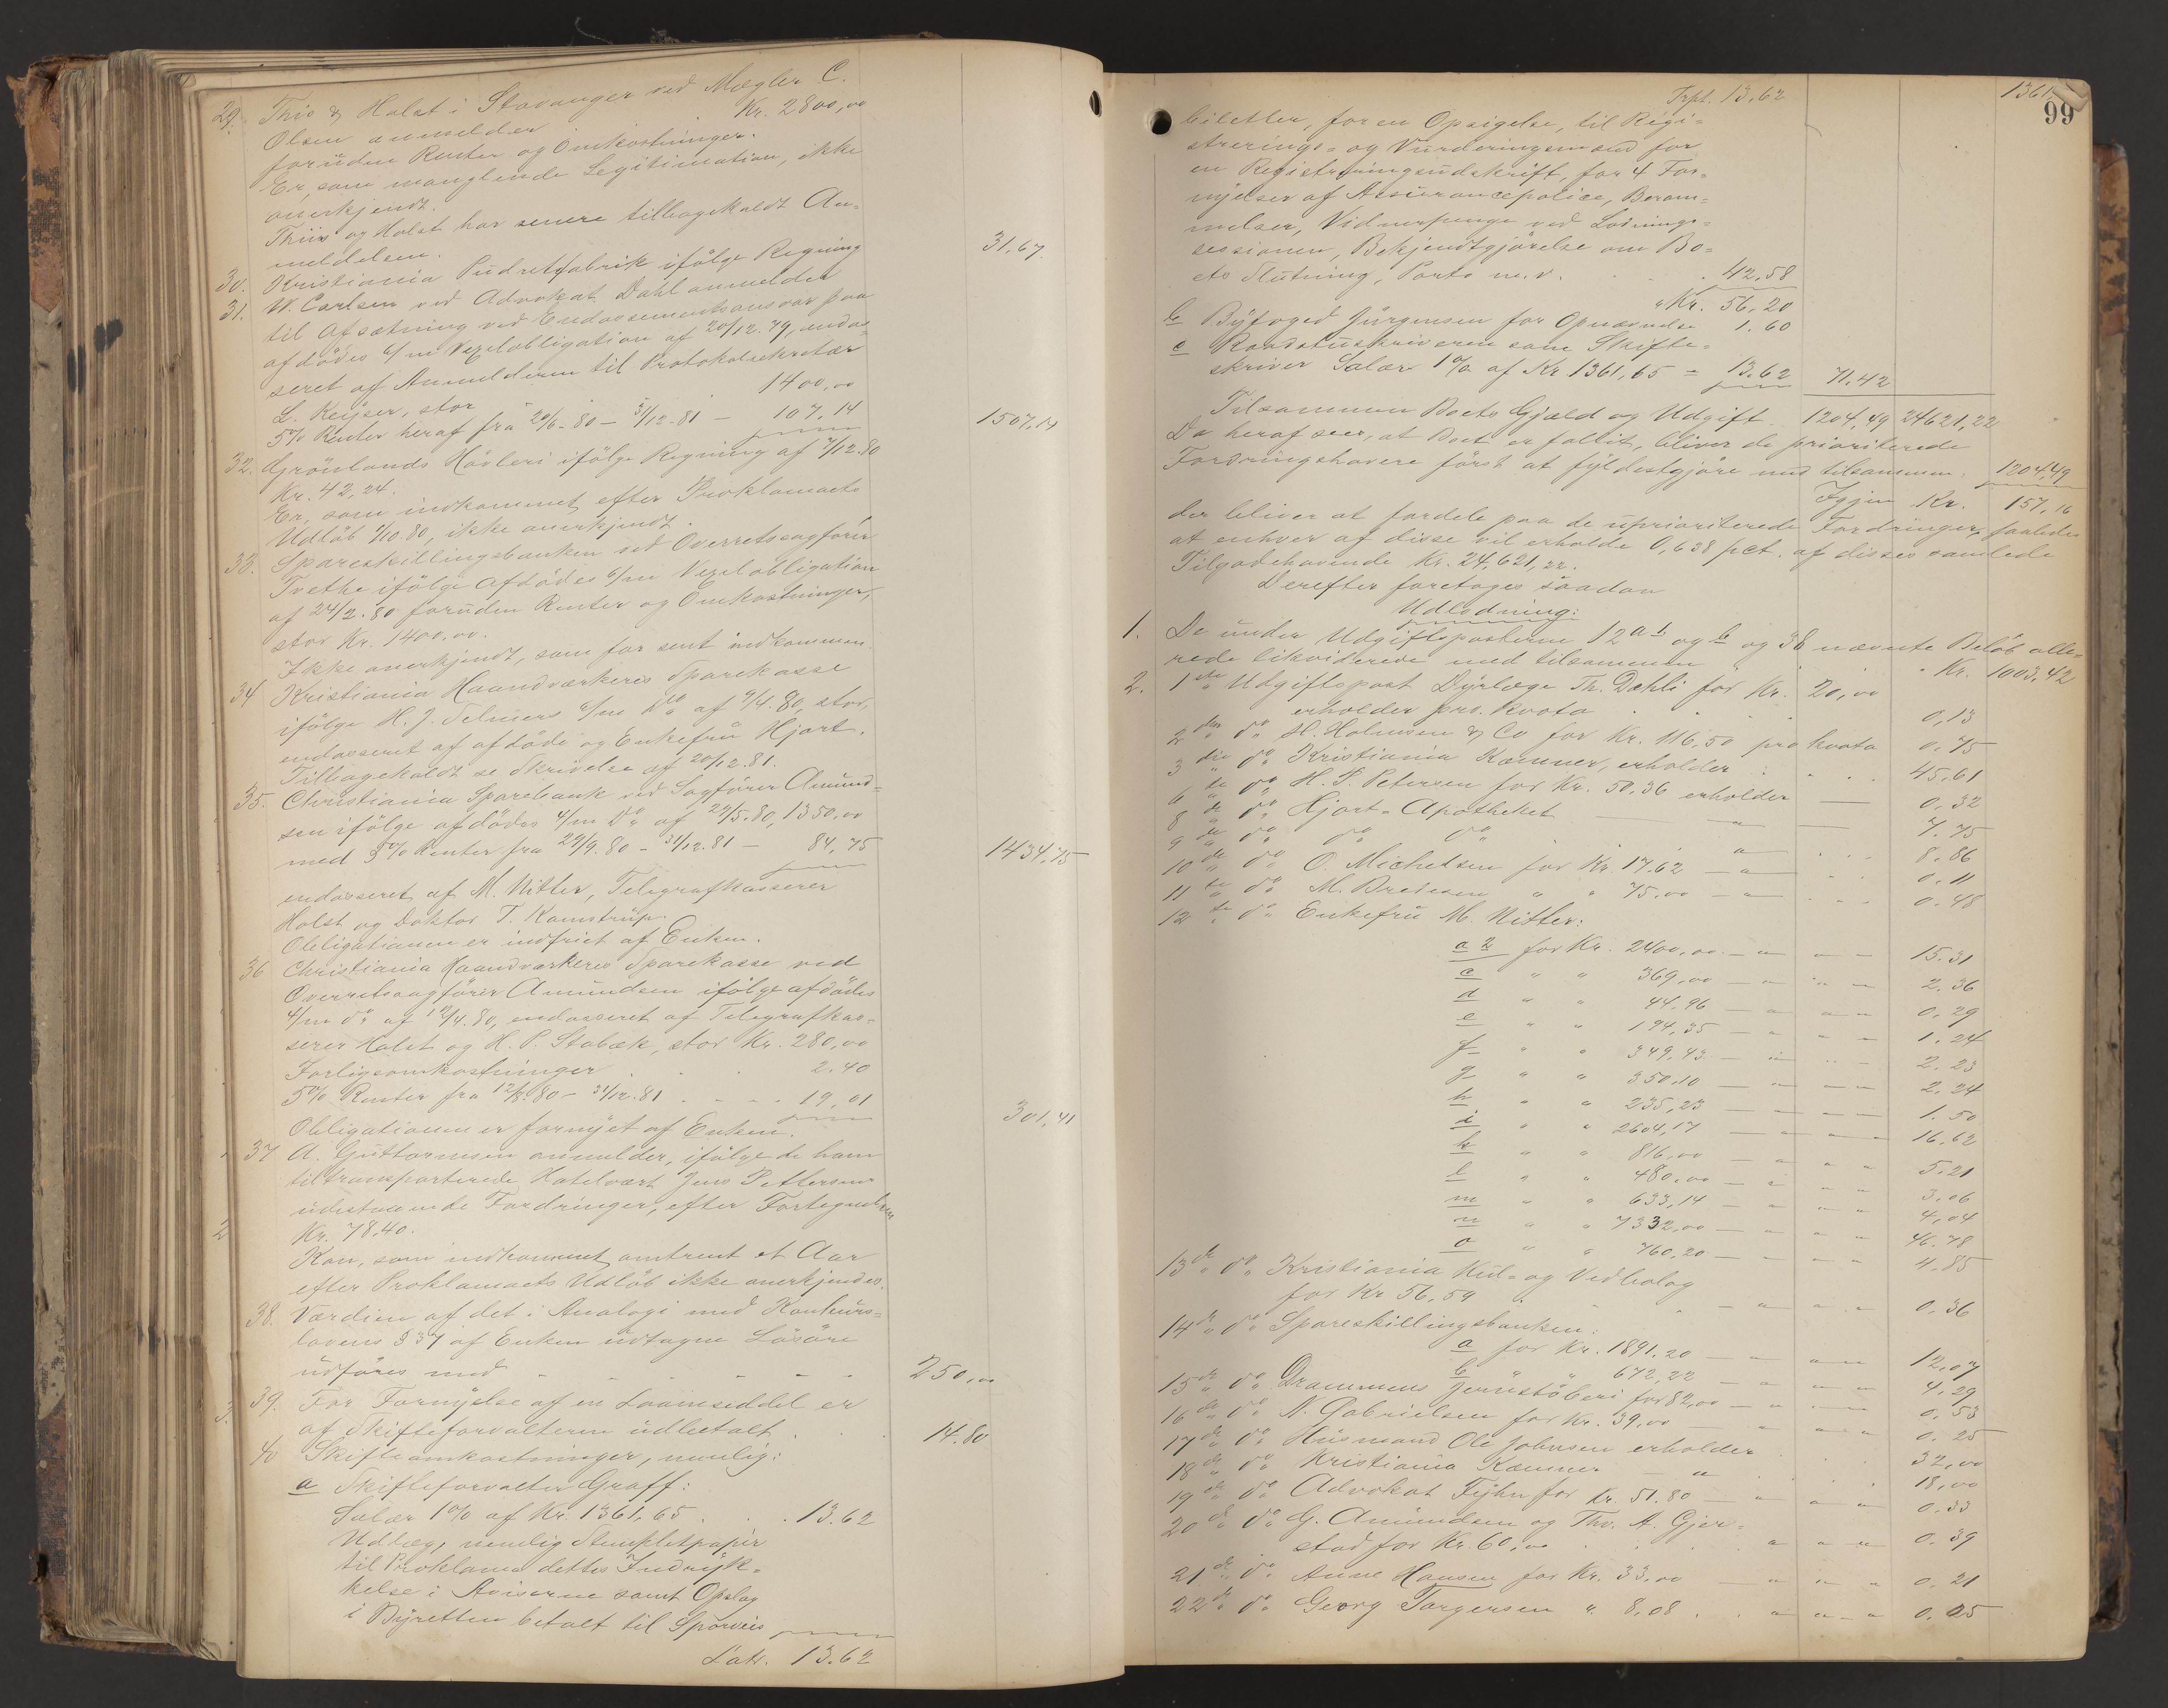 29. Thiis & Holst i Stavanger ved Mægler C.
Olsen anmelder Kr. 2800,00
foruden Renter og Omkostninger.
Er, som manglende Legitimation, ikke
anerkjendt.
Thiis og Holst har senere tilbagekaldt An-
meldelsen.
30. Kristiania Pudretfabrik ifölge Regning 31.67
31. W. Carlsen ved Advokat Dahl anmelder
til Afsætning ved Endossementsansvar paa
afdödes 6/m Vexelobligation af 20/12.79, endos-
seret af Anmelderen til Protokolsekretær
L. Keyser, stor 1400,00
5% Renter heraf fra 20/6-80 - 31/12.81 - 107.14 1507,14
32. Grönlands Hövleri ifölge Regning af 7/12.80
Kr. 42,24.
Er, som indkommet efter Proklamaets
Udlöb 1/10.80, ikke anerkjendt.
33. Spareskillingsbanken ved Overretssagförer
Trethe ifölge afdödes 6/m Vexelobligation
af 24/2.80 foruden Renter og Omkostninger,
stor Kr. 1400,00.
Ikke anerkjendt, som for sent indkommen.
34 Kristiania Haandværkeres Sparekasse
ifölge H. J. Telners 6/m Do af 19/4.80, stor,
endosseret af afdöde og Enkefru Hjort.
Tilbagekaldt se Skrivelse af 20/12.81.
35. Christiania Sparebank ved Sagförer Amund-
sen ifölge afdödes 4/m Do af 29/5.80, 1350,00
med 5% Renter fra 29/9.80 - 31/12.81 - 84,75 1434,75
endosseret af M. Nitter, Telegrafkasserer
Holst og Doktor T. Kamstrup.
Obligationen er indfriet af Enken.
36 Christiania Haandværkeres Sparekasse ved
Overretssagförer Amundsen ifölge afdödes
4/m do af 12/4.80, endosseret af Telegrafkas-
serer Holst og H. P. Stabæk, stor Kr. 280,00
Forligsomkostninger 2.40
5% Renter fra 12/8.80 - 31/12.81 19,01 301,41
Obligationen er fornyet af Enken.
37 A. Guttormsen anmelder, ifölge de ham
tiltransporterede Hotelvært Jens Pettersens
udestaaende Fordringer, efter Fortegnelsen
Kr. 78,40.
Kan, som indkommet omtrent et Aar
efter Proklamaets Udlöb ikke anerkjendes.
38. Værdien af det i Analogi med Konkurs-
lovens § 37 af Enken udtagne Lösöre
udföres med 250,00
39. For Fornyelse af en Laaneseddel er
af Skifteforvalteren udbetalt 14.80
40 Skifteomkostninger, nemlig:
a Skifteforvalter Graff:
Salær 1% af Kr. 1361,65 13.62
Udlæg, nemlig Stempletpapir
til Proklama dettes Indryk-
kelse i Aviserne samt Opslag
i Byretten betalt til Sporveis
Lat. 13.62
Trpt. 13.62 1361
99
biletter, for en Opsigelse, til Regi-
strerings- og Vurderingsmænd for
en Registreringsudskrift, for 4 For-
nyelser af Assurancepolice, Beram-
melser, Vidnerpenge ved Lodnings-
sessionen, Bekjendtgjörelse om Bo-
ets Slutning, Porto m.v. 42,58
Kr. 56,20
b Byfoged Jürgensen for Opnævnelse 1.60
c Raadstuskriveren som Skifte-
skriver Salær 1% af Kr. 1361,65 = 13.62 71.42
Tilsammen Boets Gjæld og Udgift 1204,49 24621,22
Da heraf sees, at Boet er fallit, bliver de prioriterede
Fordringshavere först at fyldestgjöre med tilsammen 1204,49
Igjen Kr. 157,16
der bliver at fordele paa de uprioriterede Fordringer, saaledes
at enhver af disse vil erholde 0,638 pct. af disses samlede
Tilgodehavende Kr. 24,621,22.
Derefter foretoges saadan
Udlodning:
1. De under Udgiftsposterne 12 a 1 og b og 38 nævnte Belöb alle-
rede likviderede med tilsammen Kr. 1003.42
2. 1ste Udgiftspost Dyrlæge Th. Dahli for Kr. 20,00
erholder pro. kvota 0,13
2den do H. Holmsen & Co for Kr. 116,50 pro kvota 0.75
3die do Kristiania Kæmner, erholder 45,61
6te do H. P. Petersen for Kr. 50.36 erholder 0.32
8de do Hjort-Apotheket 7.75
9de do do do 8.86
10de do O. Michelsen for Kr. 17.62 0.11
11te do M. Bredesen " " 75,00 0.48
12te do Enkefru M. Nitter:
a 2 for Kr. 2400,00 15.31
c " " 369,00 2.36
d " " 44.96 0.29
e " " 194,35 1.24
f " " 349,43 2.23
g " " 350.10 2.24
h " " 235,23 1.50
i " " 2604,17 16.62
k " " 816,00 5.21
l " " 480,00 3.06
m " " 633,14 4,04
n " " 7332,00 46.78
o " " 760,20 4.85
13de do Kristiania Kul- og Vedbolag
for Kr 56,59 0.36
14de do Spareskillingsbanken:
a for Kr. 1891.20 12.07
b " " 672,22 4.29
15de do Drammens Jernstöberi for 82,00 0.53
16de do N. Gabrielsen for Kr. 39,00 0.25
17de do Husmand Ole Johnsen erholder 32,00
18de do Kristiania Kæmner 18,00
19de do Advokat Fyhn for Kr. 51.80 0.33
20de do G. Amundsen og Thv. A. Gjer-
stad for Kr. 60,00 0.39
21de do Anne Hansen for Kr. 33,00 0.21
22de do Georg Torgersen " 8,08 0.05